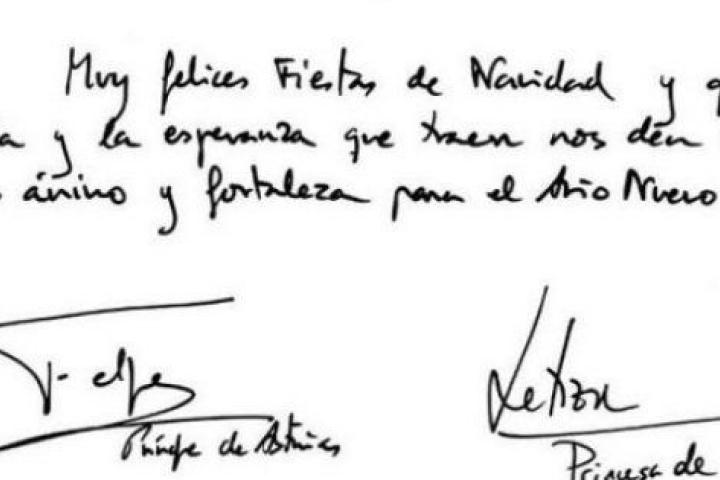 Muy felices Fiestas de Navidad y q
a y la esperanza que traen nos den
s ánimo y fortaleza para el Año Nuevo
Felipe
Letizia
Príncipe de Asturias
Princesa de